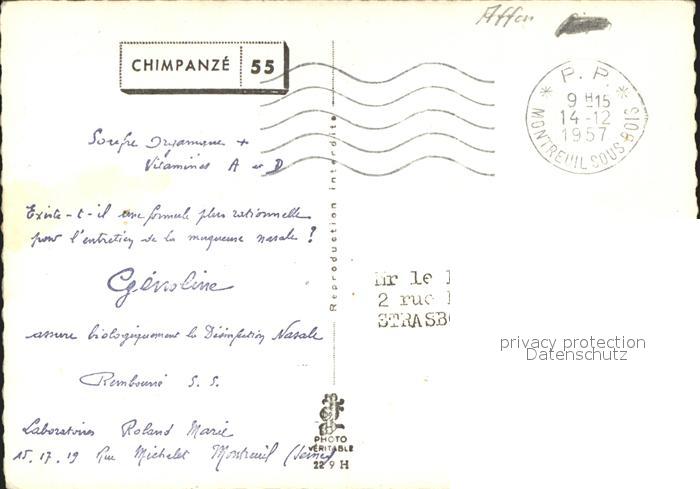 Affen
CHIMPANZÉ 55
* P. P. *
9 H 15
14-12
1957
MONTREUIL SOUS BOIS
Soufre Organique +
Vitamines A et D
Existe-t-il une formule plus rationnelle
pour l'entretien de la muqueuse nasale ?
assure biologiquement la Désinfection Nasale
Remboursé S. S.
Laboratoires Roland Marie
15.17.19 Rue Michelet Montreuil (Seine)
Reproduction interdite
Mr le
2 rue
STRASB
privacy protection
Datenschutz
PHOTO
VÉRITABLE
22 9 H